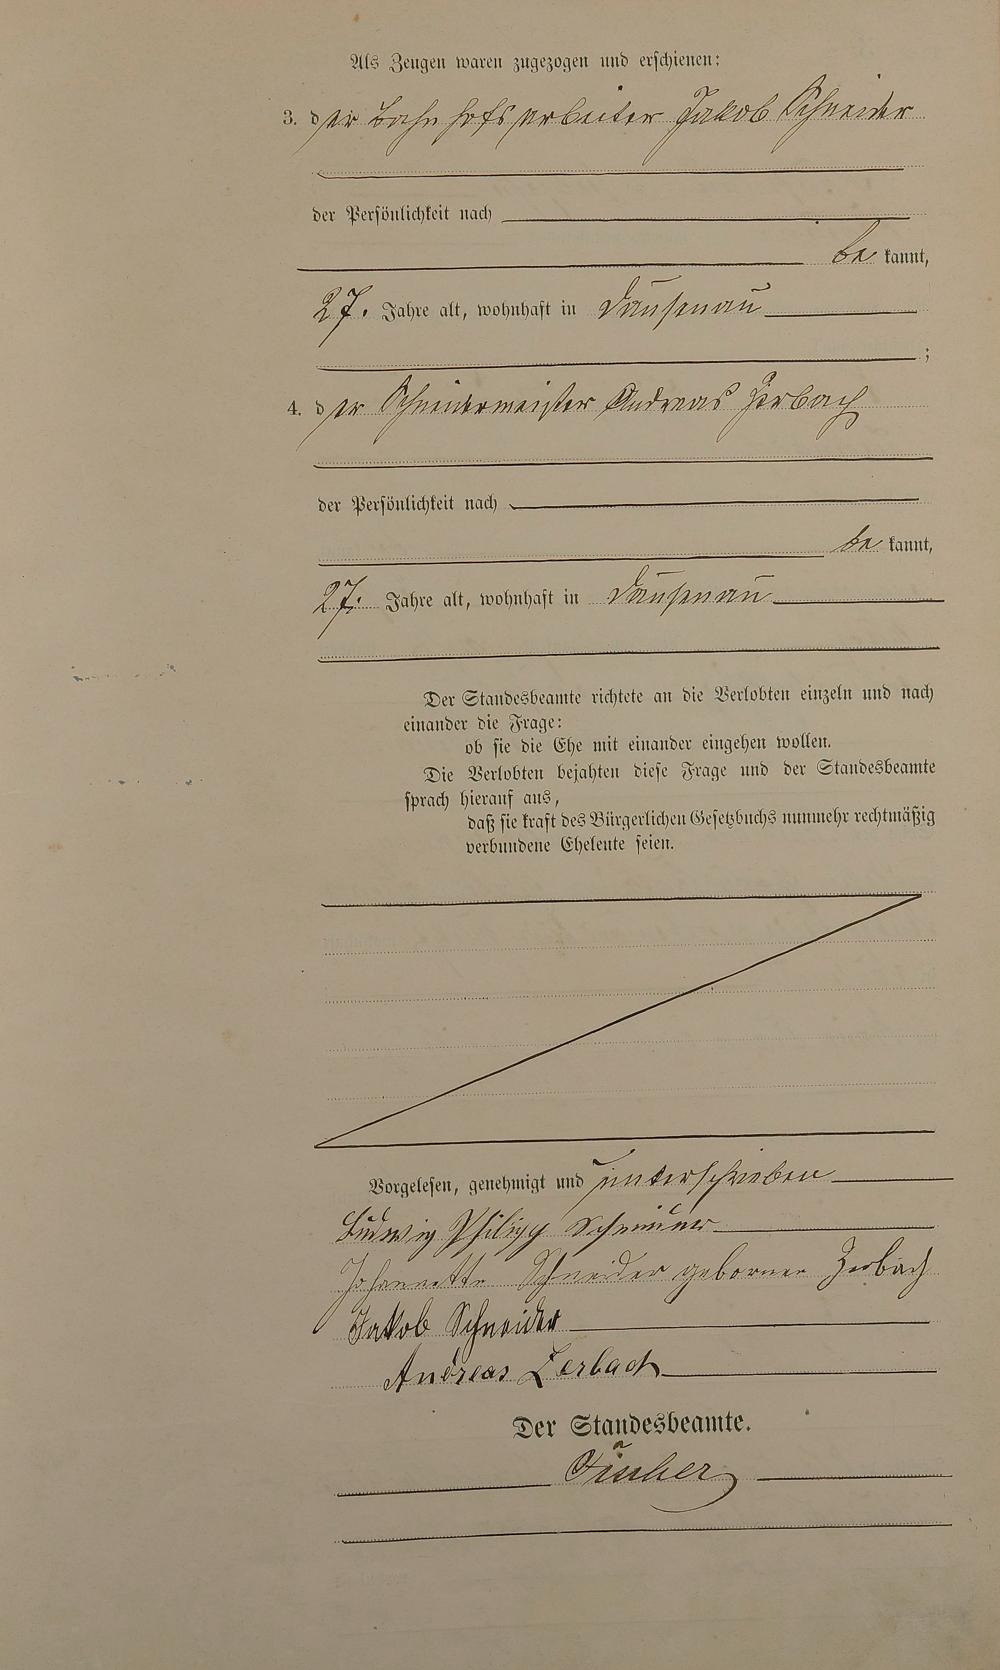 Als Zeugen waren zugezogen und erschienen:
3. der Bahnhofsarbeiter Jakob Schneider
der Persönlichkeit nach
bekannt,
27. Jahre alt, wohnhaft in Dausenau
;
4. der Schneidermeister Andreas Zerbach
der Persönlichkeit nach
bekannt,
27. Jahre alt, wohnhaft in Dausenau
Der Standesbeamte richtete an die Verlobten einzeln und nach
einander die Frage:
ob sie die Ehe mit einander eingehen wollen.
Die Verlobten bejahten diese Frage und der Standesbeamte
sprach hierauf aus,
daß sie kraft des Bürgerlichen Gesetzbuchs nunmehr rechtmäßig
verbundene Eheleute seien.
Vorgelesen, genehmigt und unterschrieben
Ludwig Philipp Schneider
Johannette Schneider geborner Zerbach
Jakob Schneider
Andreas Zerbach
Der Standesbeamte.